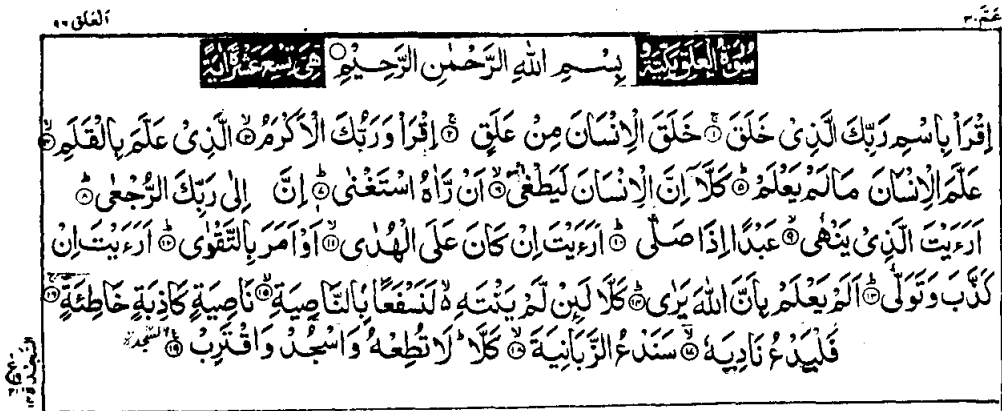 عَمَّ ٣٠ العلق ٩٦
سُوْرَةُ الْعَلَقِ مَكِّيَّةٌ بِسْمِ اللهِ الرَّحْمٰنِ الرَّحِيْمِ هِيَ تِسْعَ عَشْرَةَ اٰيَةً
اِقْرَاْ بِاسْمِ رَبِّكَ الَّذِيْ خَلَقَ ۚ‏﴿۱﴾ خَلَقَ الْاِنْسَانَ مِنْ عَلَقٍ ۚ‏﴿۲﴾ اِقْرَاْ وَرَبُّكَ الْاَكْرَمُ ۙ‏﴿۳﴾ الَّذِيْ عَلَّمَ بِالْقَلَمِ ۙ‏﴿۴﴾
عَلَّمَ الْاِنْسَانَ مَا لَمْ يَعْلَمْ ؕ‏﴿۵﴾ كَلَّاۤ اِنَّ الْاِنْسَانَ لَيَطْغٰٓى ۙ‏﴿۶﴾ اَنْ رَّاٰهُ اسْتَغْنٰى ؕ‏﴿۷﴾ اِنَّ اِلٰى رَبِّكَ الرُّجْعٰى ؕ‏﴿۸﴾
اَرَءَيْتَ الَّذِيْ يَنْهٰى ۙ‏﴿۹﴾ عَبْدًا اِذَا صَلّٰى ؕ‏﴿۱۰﴾ اَرَءَيْتَ اِنْ كَانَ عَلَى الْهُدٰٓى ۙ‏﴿۱۱﴾ اَوْ اَمَرَ بِالتَّقْوٰى ؕ‏﴿۱۲﴾ اَرَءَيْتَ اِنْ
كَذَّبَ وَتَوَلّٰى ؕ‏﴿۱۳﴾ اَلَمْ يَعْلَمْ بِاَنَّ اللهَ يَرٰى ؕ‏﴿۱۴﴾ كَلَّا لَئِنْ لَّمْ يَنْتَهِ ۙ۬ لَنَسْفَعًۢا بِالنَّاصِيَةِ ۙ‏﴿۱۵﴾ نَاصِيَةٍ كَاذِبَةٍ خَاطِئَةٍ ۚ‏﴿۱۶﴾
فَلْيَدْعُ نَادِيَهٗ ۙ‏﴿۱۷﴾ سَنَدْعُ الزَّبَانِيَةَ ۙ‏﴿۱۸﴾ كَلَّا ؕ لَا تُطِعْهُ وَاسْجُدْ وَاقْتَرِبْ ۩‏﴿۱۹﴾
السجدة